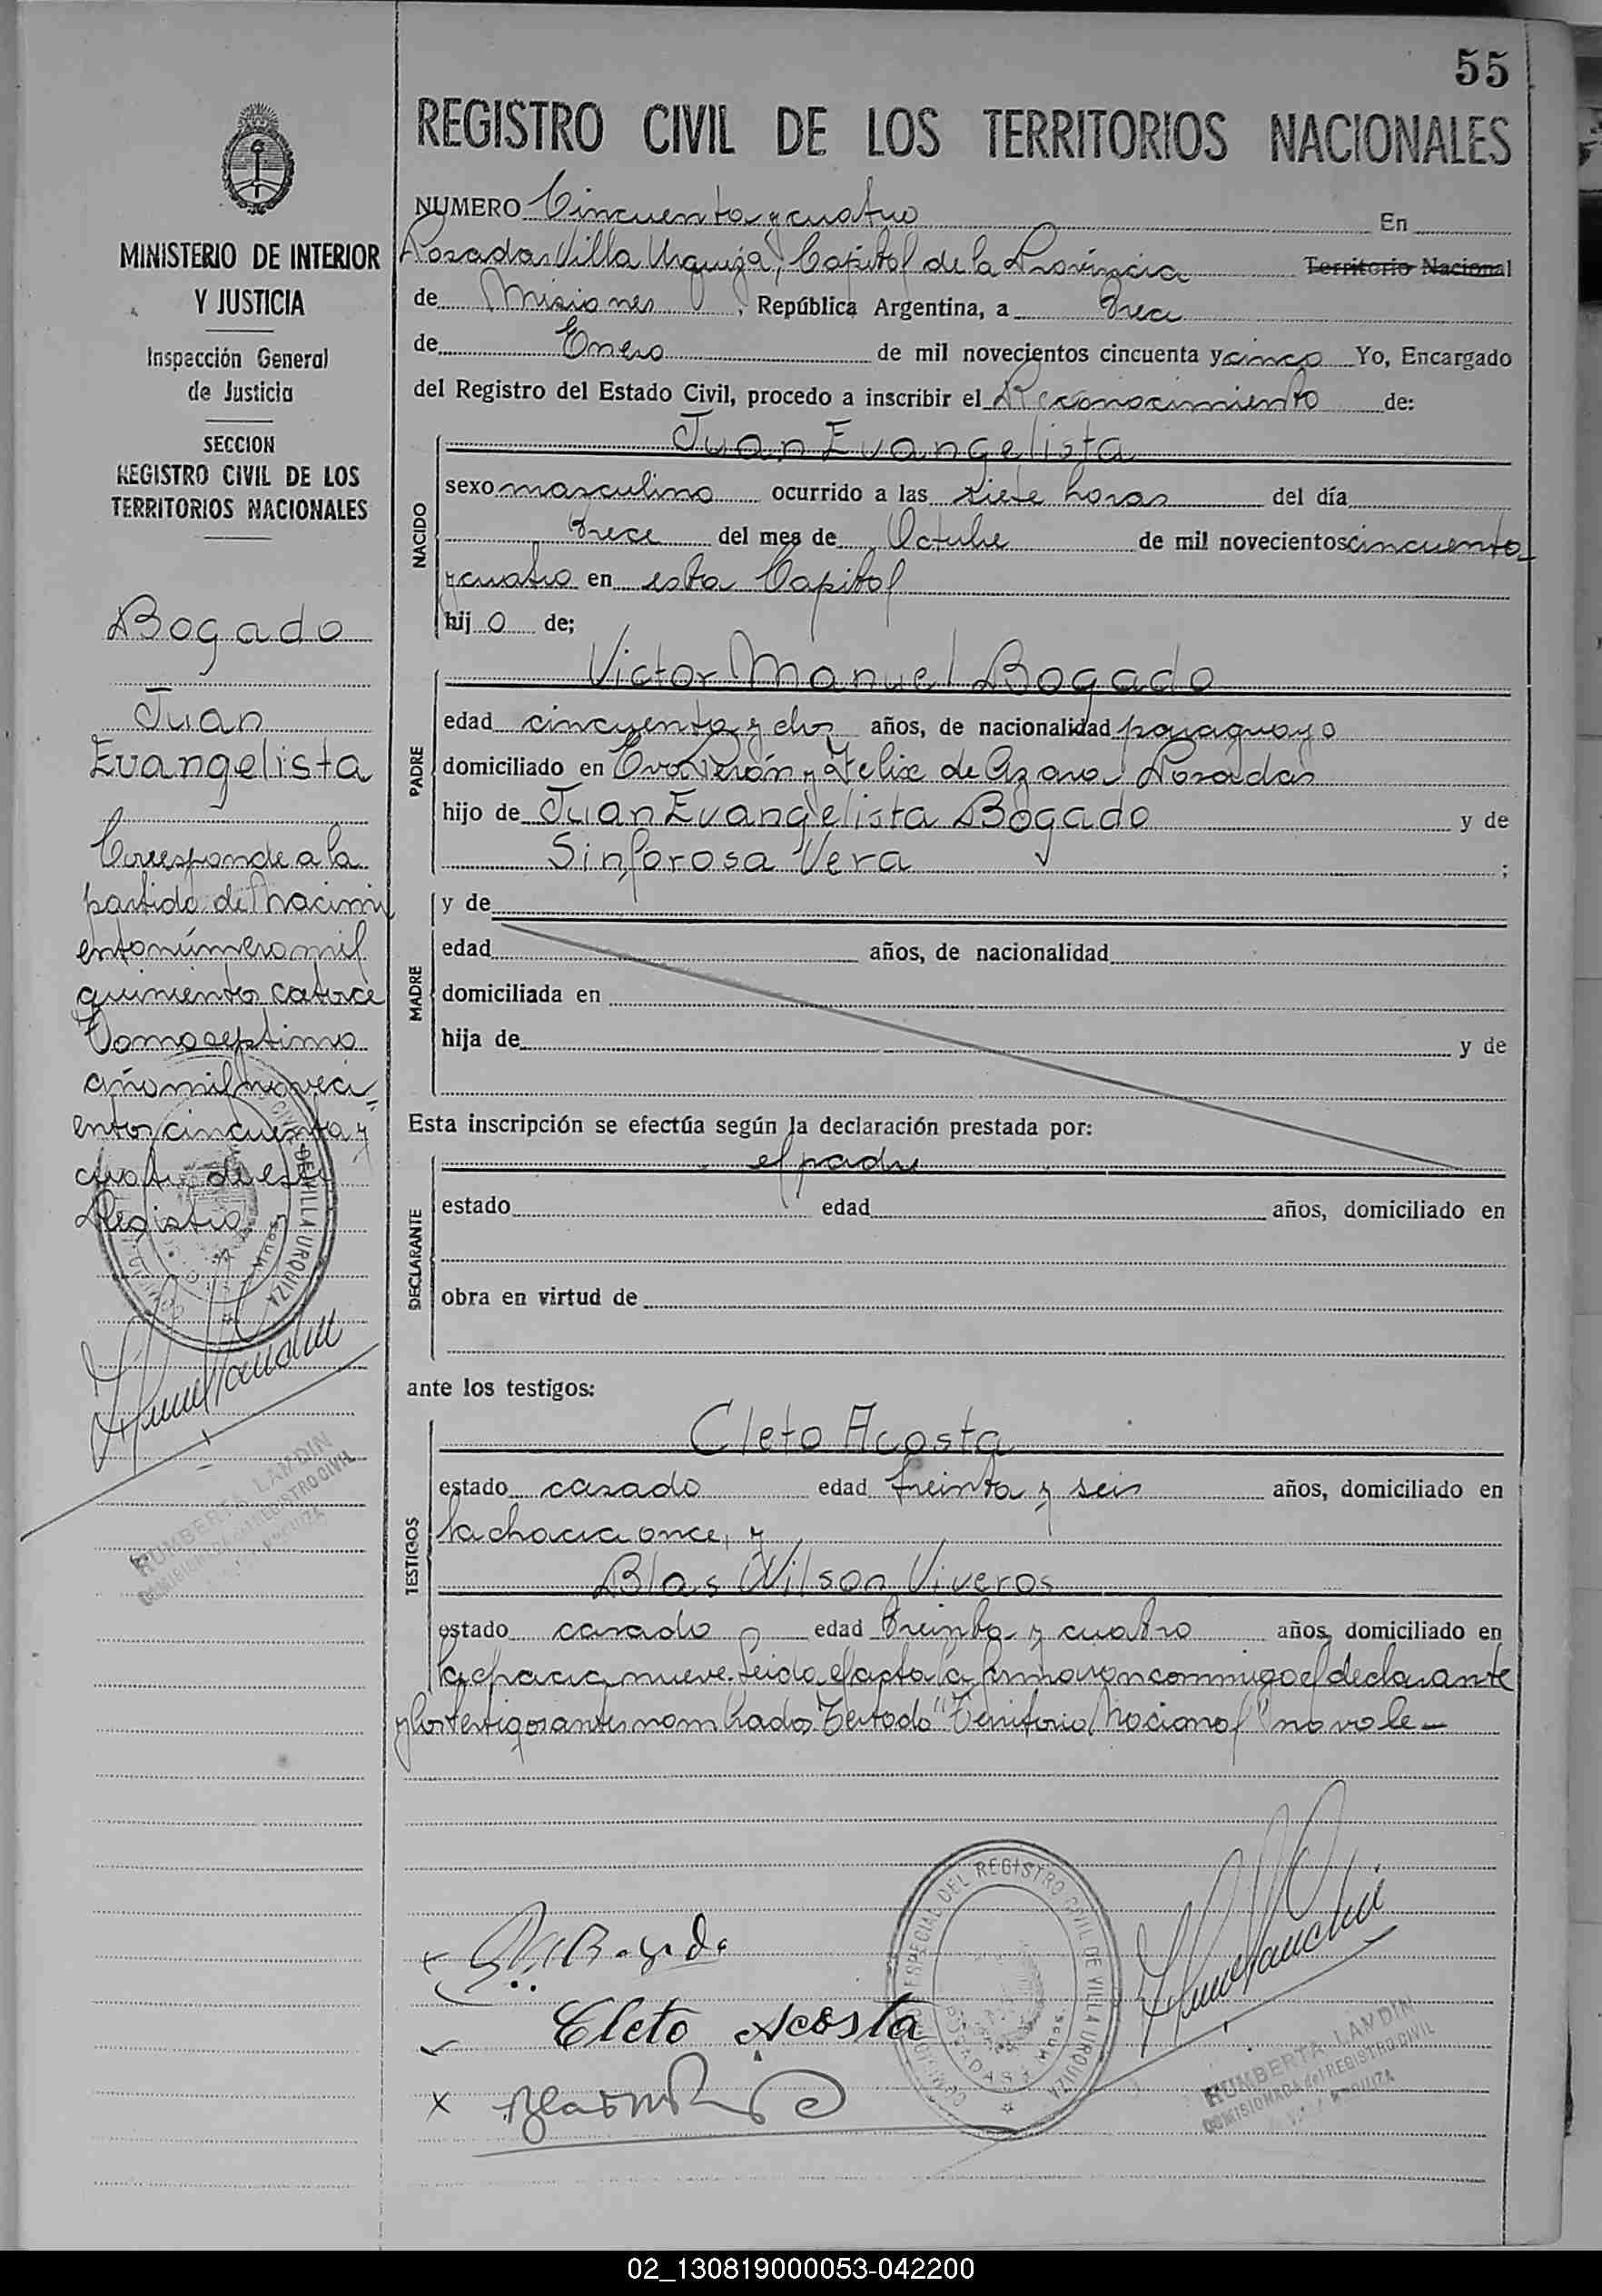 55
REGISTRO CIVIL DE LOS TERRITORIOS NACIONALES
MINISTERIO DE INTERIOR
Y JUSTICIA
Inspección General
de Justicia
SECCION
REGISTRO CIVIL DE LOS
TERRITORIOS NACIONALES
Bogado
Juan
Evangelista
Corresponde a la
partida de Nacimi
ento número mil
quinientos catorce
Tomo septimo
año mil noveci"
entos cincuenta y
cuatro de este
Registro
HUMBERTA LANDIN
COMISIONADA del REGISTRO CIVIL
NUMERO Cincuenta y cuatro En
Posadas Villa Urquiza, Capital de la Provincia Territorio Nacional
de Misiones, República Argentina, a Trece
de Enero de mil novecientos cincuenta y cinco Yo, Encargado
del Registro del Estado Civil, procedo a inscribir el Reconocimiento de:
NACIDO
Juan Evangelista
sexo masculino ocurrido a las siete horas del día
trece del mes de Octubre de mil novecientos cincuenta
y cuatro en esta Capital
hij o de;
PADRE
Victor Manuel Bogado
edad cincuenta y dos años, de nacionalidad paraguayo
domiciliado en Eva Perón y Felix de Azara Posadas
hijo de Juan Evangelista Bogado y de
Sinforosa Vera ;
MADRE
y de
edad años, de nacionalidad
domiciliada en
hija de y de
Esta inscripción se efectúa según la declaración prestada por:
DECLARANTE
el padre
estado edad años, domiciliado en
obra en virtud de
ante los testigos:
TESTIGOS
Cleto Acosta
estado casado edad treinta y seis años, domiciliado en
la chacra once, y
Blas Wilson Viveros
estado casado edad treinta y cuatro años, domiciliado en
la chacra nueve. Leida el acta la firmaron conmigo el declarante
y los testigos antes nombrados. Testado "Territorio Nacional" no vale-
Cleto Acosta
COMISION ESPECIAL DEL REGISTRO CIVIL DE VILLA URQUIZA
POSADAS Mnes.
HUMBERTA LANDIN
COMISIONADA del REGISTRO CIVIL
02_130819000053-042200